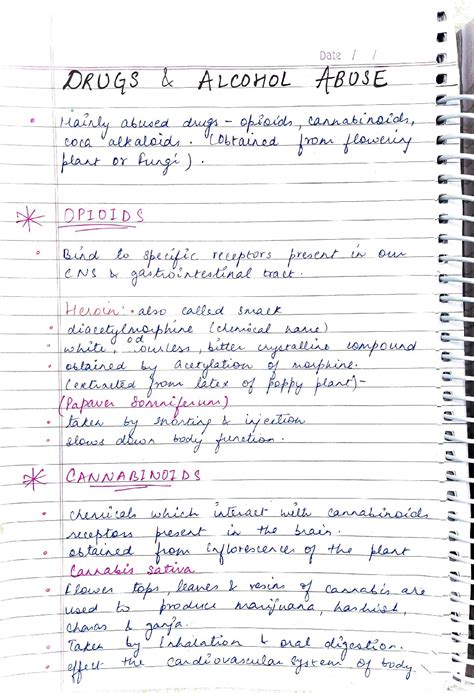 Date / /
DRUGS & ALCOHOL ABUSE
Mainly abused drugs – opioids, cannabinoids,
coca alkaloids. (obtained from flowering
plant or fungi).
OPIOIDS
Bind to specific receptors present in our
CNS & gastrointestinal tract.
Heroin: also called smack
diacetylmorphine (chemical name)
white, odourless, bitter crystalline compound
obtained by acetylation of morphine.
(extracted from latex of poppy plant)–
(Papaver somniferum)
taken by snorting & injection
slows down body function.
CANNABINOIDS
chemicals which interact with cannabinoids
receptors present in the brain.
obtained from inflorescences of the plant
Cannabis sativa
Flower tops, leaves & resins of cannabis are
used to produce marijuana, hashish,
charas & ganja.
Taken by inhalation & oral digestion.
effect the cardiovascular system of body.